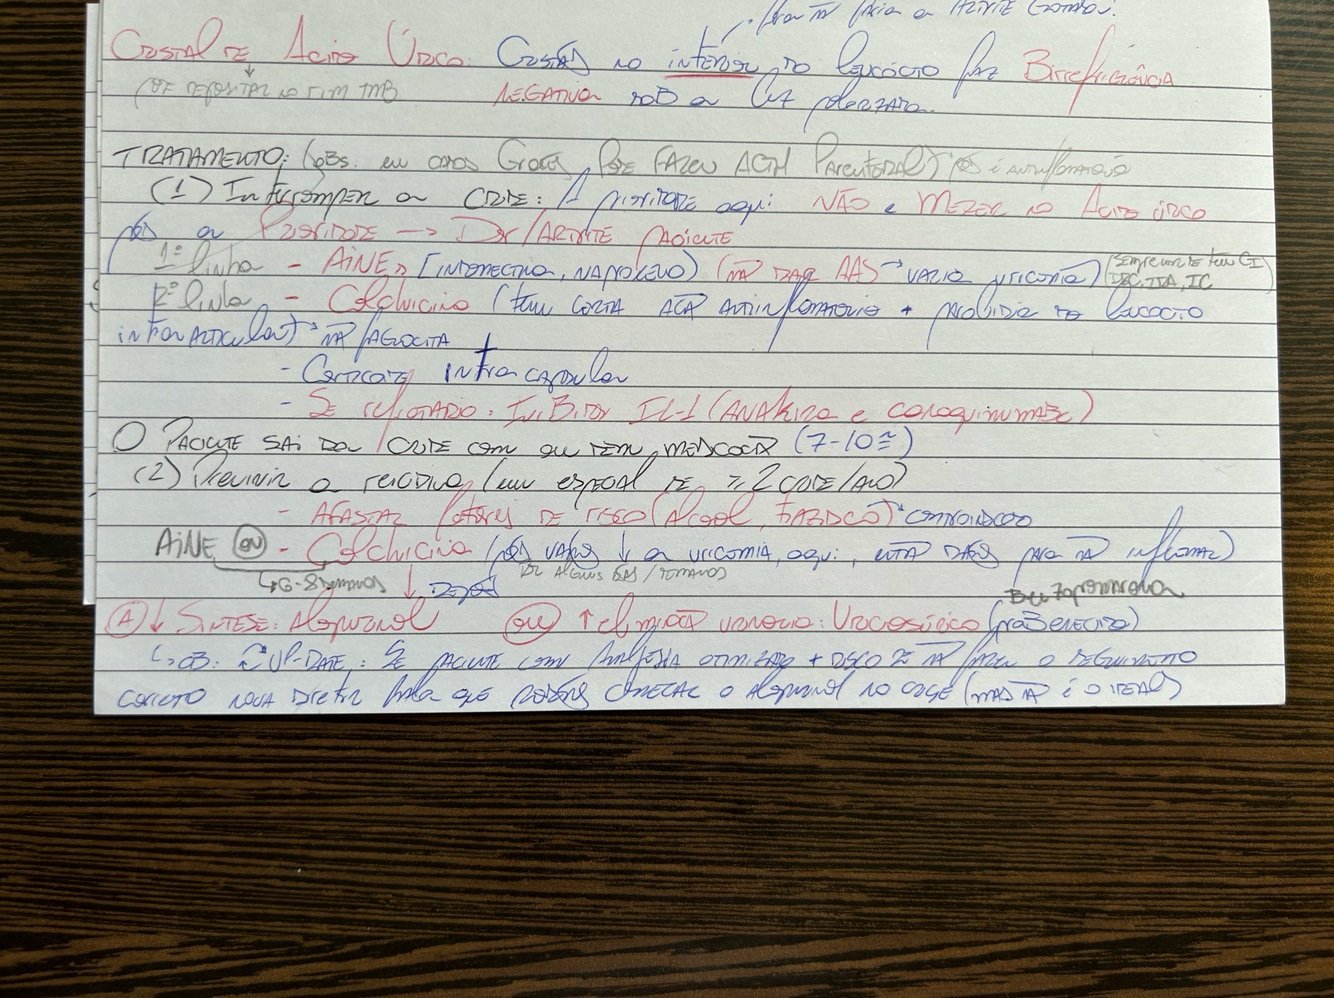 para
Cristal de Ácido Úrico: Cristais no interior do leucócito faz Birrefrigência
(se depositar no fim TMB
NEGATIVA sob a luz polarizada.
TRATAMENTO: (obs: em casos Graves pode fazer ACTH Parenteral) pois é antiinflamatório
(1) Interromper a crise: A prioridade aqui NÃO é MEXER no Ácido úrico
pois a Prioridade → Dor/ARTRITE paciente
1ª linha - AINEs [indometacina, naproxeno) (não DAR AAS → varia uricemia) (sempre ver se tem CI
DRC, ITA, IC
2ª linha - Colchicina (tem certa ação antiinflamatória + proibição do leucócito
intra articular) → não fagocita
- Corticoide intra capsular
- Se refratário: Inibidor IL-1 (ANAkira e canaquinumabe)
O Paciente sai da CRISE com ou sem medicação (7-10
(2) Prevenir a recidiva (em especial se ≥ 2 crise/ano)
- AFASTAR fatores de risco (Álcool, TIAZIDICO) controlado
AINE ou - Colchicina (pois vamos ↓ a uricemia, aqui, então damos para não inflamar)
↳ 6-8 semanas
DEPOIS
por alguns dias/semanas
Benzbromarona
(A) ↓ Síntese: Alopurinol ou ↑ eliminação urinária: Uricosúrico (probenecida)
↳ OB: UP-DATE: Se paciente com profilaxia otimizada + risco de não fazer o seguimento
correto nova diretriz fala que podemos começar o Alopurinol na crise (mas não é o ideal)